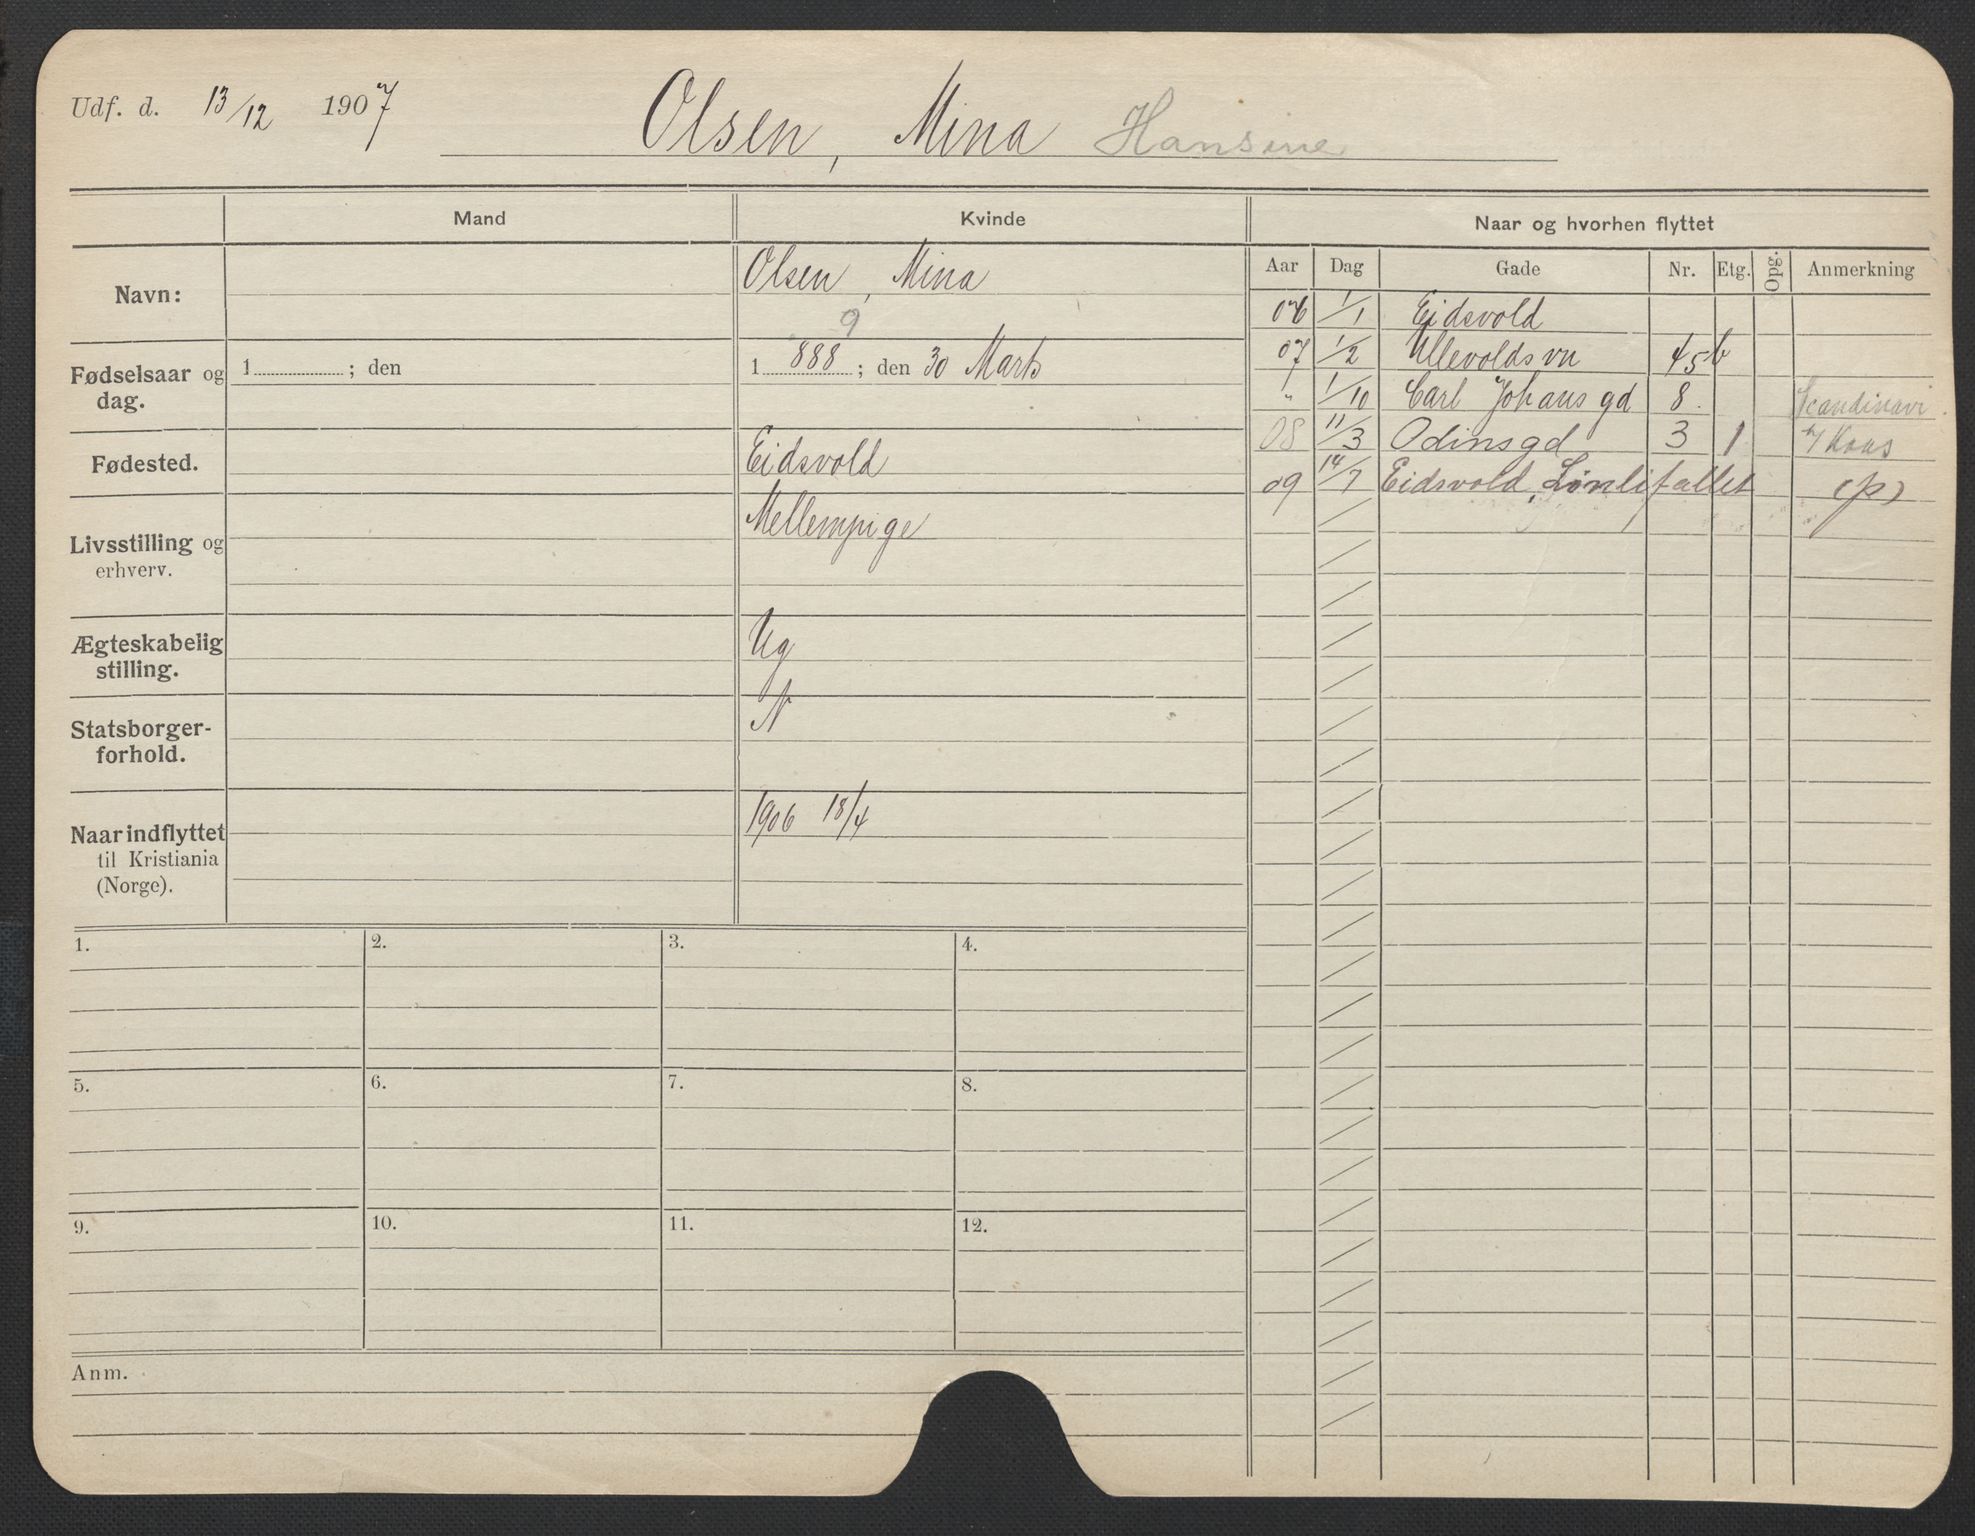 Udf. d. 13/12 1907 Olsen, Mina Hansine
Mand Kvinde Naar og hvorhen flyttet
Aar Dag Gade Nr. Etg. Opg. Anmerkning
Navn: Olsen, Mina
9
Fødselsaar og dag. 1 ; den 1 888 ; den 30 Marts
Fødested. Eidsvold
Livsstilling og erhverv. Mellempige
Ægteskabelig stilling. Ug
Statsborger-forhold. N
Naar indflyttet til Kristiania (Norge). 1906 18/4
06 1/1 Eidsvold
07 1/2 Ullevoldsvn 45 b
" 1/10 Carl Johans gd 8. Scandinavi.
08 11/3 Odinsgd 3 1 h/ Kaas
09 14/7 Eidsvold, Linlifallet (p)
1. 2. 3. 4.
5. 6. 7. 8.
9. 10. 11. 12.
Anm.